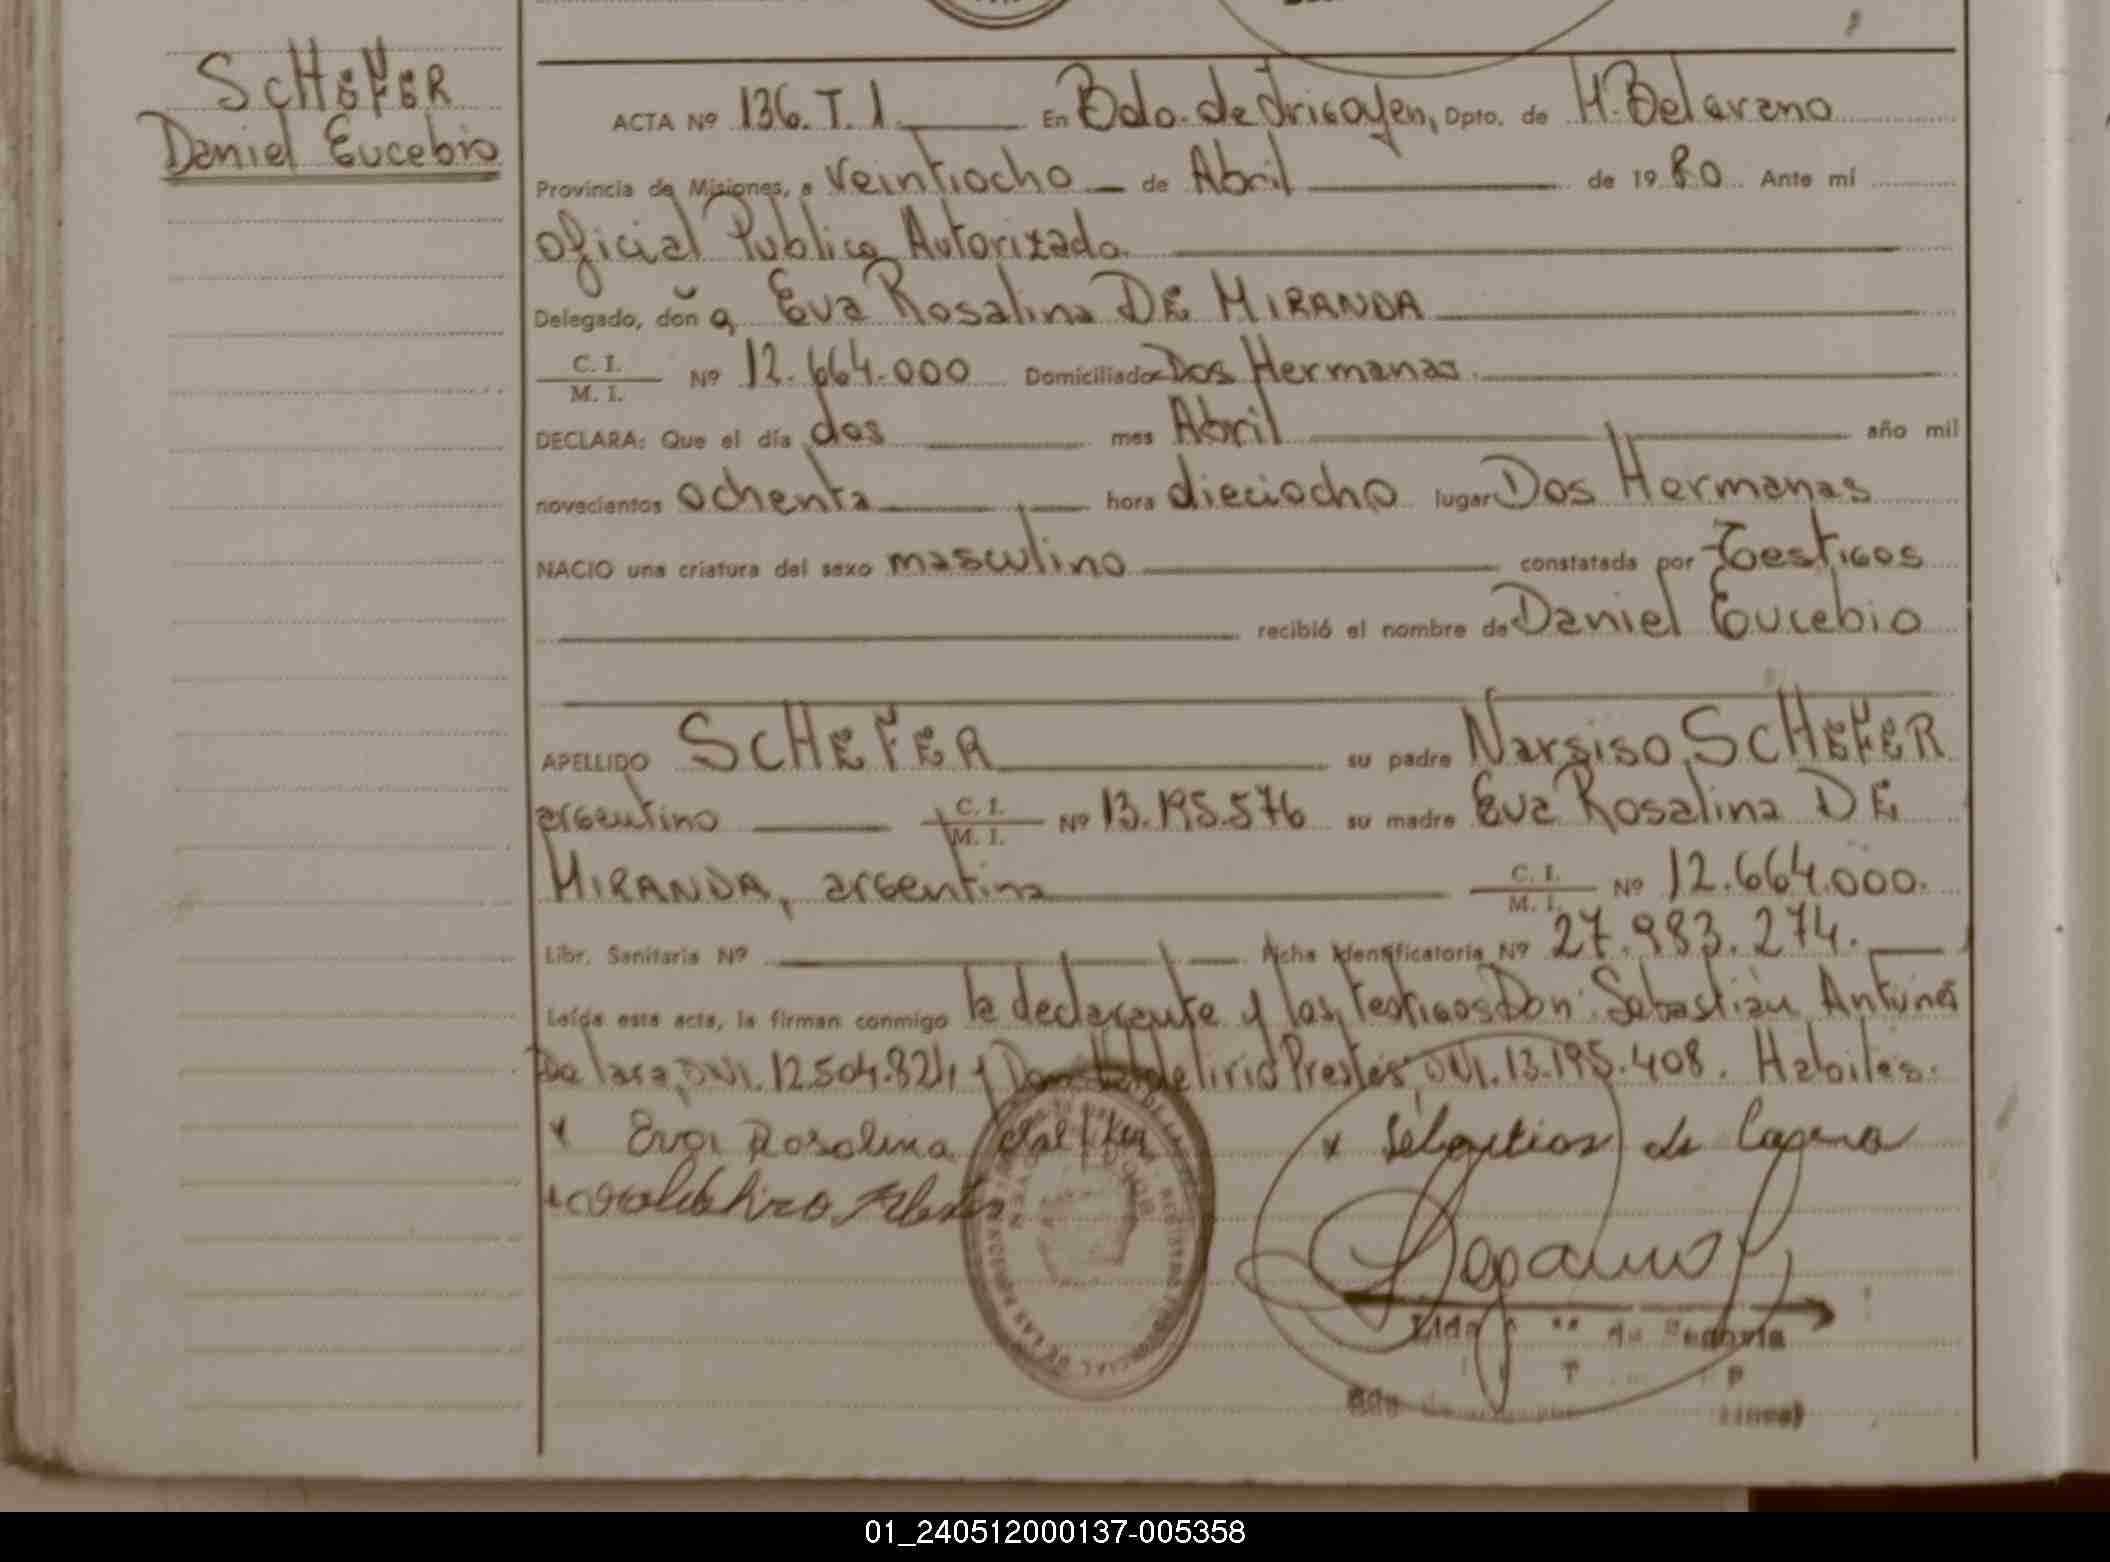 SCHEFER
Daniel Eucebio
ACTA Nº 136. T. I. En Bdo. de Irigoyen, Dpto. de M. Belgrano
Provincia de Misiones, a Veintiocho de Abril de 1980 Ante mí
Oficial Público Autorizado.
Delegado, doña Eva Rosalina DE MIRANDA
C. I.
M. I. Nº 12.664.000 Domiciliado Dos Hermanas.
DECLARA: Que el día dos mes Abril año mil
novecientos ochenta hora dieciocho lugar Dos Hermanas
NACIO una criatura del sexo masculino constatada por Testigos
recibió el nombre de Daniel Eucebio
APELLIDO SCHEFER su padre Narsiso SCHEFER
argentino C. I.
M. I. Nº 13.195.576 su madre Eva Rosalina DE
MIRANDA, argentina C. I.
M. I. Nº 12.664.000.
Libr. Sanitaria Nº Ficha Identificatoria Nº 27.983.274.
Leída esta acta, la firman conmigo la declarante y los testigos Don: Sebastián Antunes
De Lara, DNI. 12.504.824, y Don Prestes, DNI. 13.195.408. Habiles.
x Eva Rosalina x
01_240512000137-005358